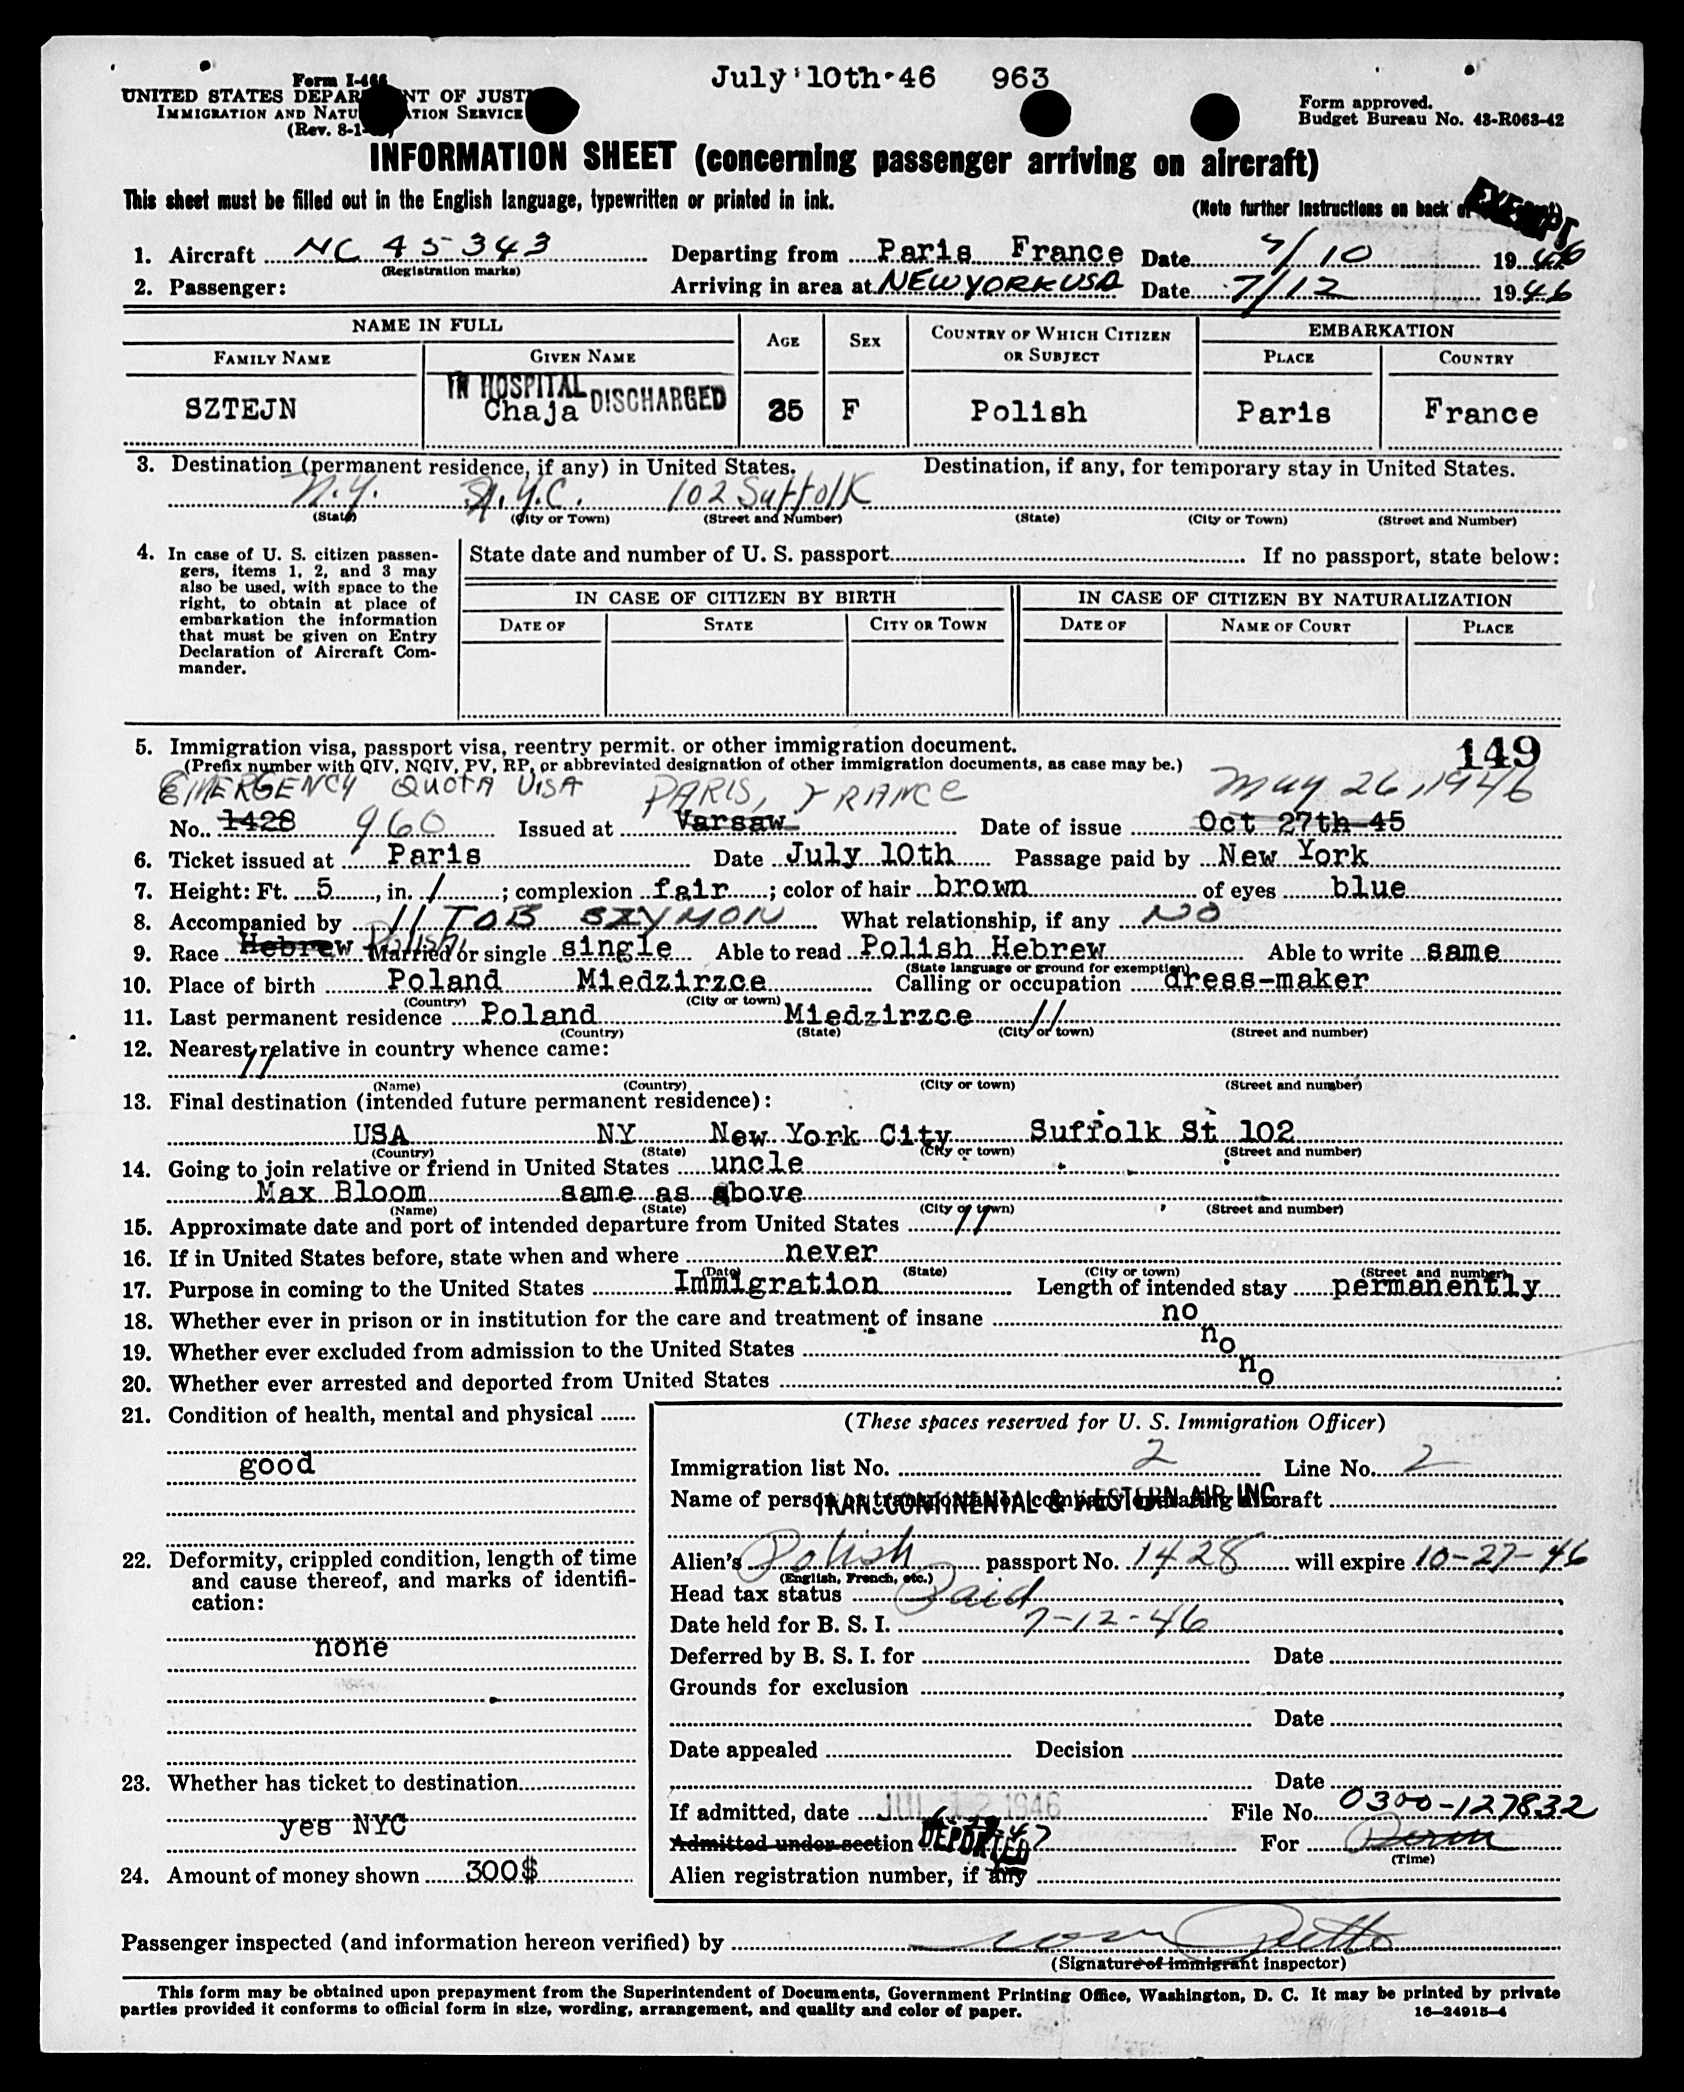 July 10th 46 963
Form I-466
UNITED STATES DEPARTMENT OF JUSTICE
IMMIGRATION AND NATURALIZATION SERVICE
(Rev. 8-1-
Form approved.
Budget Bureau No. 43-R063-42
INFORMATION SHEET (concerning passenger arriving on aircraft)
This sheet must be filled out in the English language, typewritten or printed in ink.
(Note further instructions on back of
EXEMPT
1. Aircraft NC 45343 Departing from Paris France Date 7/10 1946
(Registration marks)
2. Passenger: Arriving in area at NEW YORK USA Date 7/12 1946
NAME IN FULL AGE SEX COUNTRY OF WHICH CITIZEN OR SUBJECT EMBARKATION
FAMILY NAME GIVEN NAME PLACE COUNTRY
IN HOSPITAL DISCHARGED
SZTEJN Chaja 25 F Polish Paris France
3. Destination (permanent residence, if any) in United States. Destination, if any, for temporary stay in United States.
N.Y. N.Y.C. 102 Suffolk
(State) (City or Town) (Street and Number) (State) (City or Town) (Street and Number)
4. In case of U. S. citizen passen-
gers, items 1, 2, and 3 may
also be used, with space to the
right, to obtain at place of
embarkation the information
that must be given on Entry
Declaration of Aircraft Com-
mander.
State date and number of U. S. passport If no passport, state below:
IN CASE OF CITIZEN BY BIRTH IN CASE OF CITIZEN BY NATURALIZATION
DATE OF STATE CITY OR TOWN DATE OF NAME OF COURT PLACE
5. Immigration visa, passport visa, reentry permit, or other immigration document. 149
(Prefix number with QIV, NQIV, PV, RP, or abbreviated designation of other immigration documents, as case may be.)
EMERGENCY QUOTA VISA PARIS, FRANCE May 26, 1946
No. 1428 960 Issued at Varsaw Date of issue Oct 27th-45
6. Ticket issued at Paris Date July 10th Passage paid by New York
7. Height: Ft. 5, in. 1; complexion fair; color of hair brown of eyes blue
8. Accompanied by // TOB SZYMON What relationship, if any NO
9. Race Hebrew Polish Married or single single Able to read Polish Hebrew Able to write same
(State language or ground for exemption)
10. Place of birth Poland Miedzirzce Calling or occupation dress-maker
(Country) (City or town)
11. Last permanent residence Poland Miedzirzce //
(Country) (State) (City or town) (Street and number)
12. Nearest relative in country whence came:
//
(Name) (Country) (City or town) (Street and number)
13. Final destination (intended future permanent residence):
USA NY New York City Suffolk St 102
(Country) (State) (City or town) (Street and number)
14. Going to join relative or friend in United States uncle
Max Bloom same as above
(Name) (State) (City or town) (Street and number)
15. Approximate date and port of intended departure from United States //
16. If in United States before, state when and where never
(Date) (State) (City or town) (Street and number)
17. Purpose in coming to the United States Immigration Length of intended stay permanently
18. Whether ever in prison or in institution for the care and treatment of insane no
19. Whether ever excluded from admission to the United States no
20. Whether ever arrested and deported from United States no
21. Condition of health, mental and physical
good
22. Deformity, crippled condition, length of time
and cause thereof, and marks of identifi-
cation:
none
23. Whether has ticket to destination
yes NYC
24. Amount of money shown 300$
(These spaces reserved for U. S. Immigration Officer)
Immigration list No. 2 Line No. 2
Name of person or transportation company operating aircraft
TRANSCONTINENTAL & WESTERN AIR INC.
Alien's Polish passport No. 1428 will expire 10-27-46
(English, French, etc.)
Head tax status Paid
Date held for B. S. I. 7-12-46
Deferred by B. S. I. for Date
Grounds for exclusion
Date
Date appealed Decision
Date
If admitted, date JUL 12 1946 File No. 0300-127832
Admitted under section DEPORTED For Perm
(Time)
Alien registration number, if any
Passenger inspected (and information hereon verified) by
(Signature of immigrant inspector)
This form may be obtained upon prepayment from the Superintendent of Documents, Government Printing Office, Washington, D. C. It may be printed by private
parties provided it conforms to official form in size, wording, arrangement, and quality and color of paper. 16—24915-4